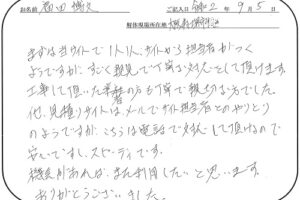 お名前 西田 博文 ご記入日 令和2年9月5日
解体現場所在地 大阪府
まずは当サイトで1人1人、サイトから担当者がつく
ようですが、すごく親見で丁寧な対人として頂けます。
工事して頂いた業者の方も丁寧で親切な方でした。
他、見積りサイトは、メールでサイト担当者とのやりとり
のようですが、こちらは電話で対応して頂けるので
安心ですし、スピーディです。
機会があれば、また利用したいと思います。
ありがとうございました。